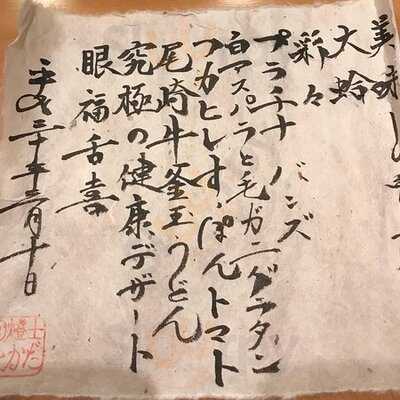 美味し
大蛤
彩々
プラチナ バンズ
白アスパラと毛ガニグラタン
フカヒレす.ぽんトマト
尾崎牛釜玉うどん
究極の健康デザート
眼福舌喜
平成三十年三月十日